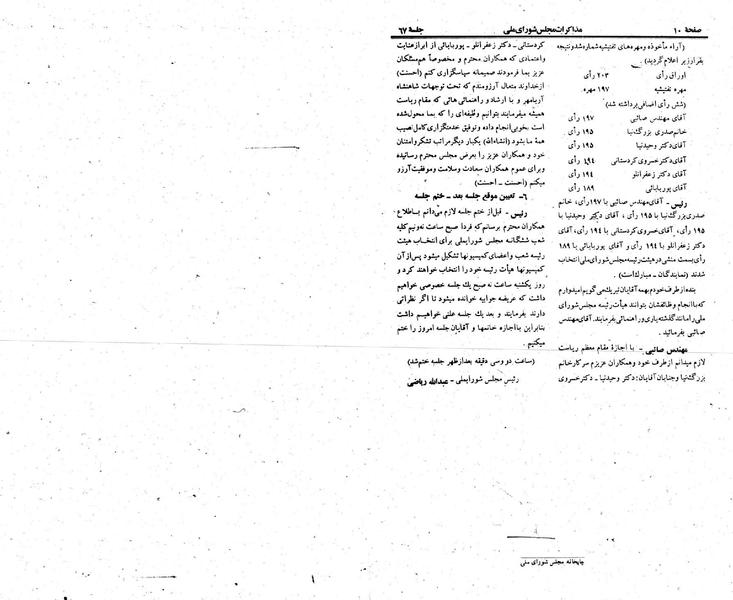 صفحهٔ ۱۰
مذاکرات مجلس شورای ملی
جلسهٔ ۶۷
(آراء مأخوذه و مهره‌های تفتیشیه شماره شد و نتیجه
بقرار زیر اعلام گردید).
اوراق رأی ۲۰۳ رأی
مهره تفتیشیه ۱۹۷ مهره
(شش رأی اضافی برداشته شد)
آقای مهندس صائبی ۱۹۷ رأی
خانم صدری بزرگ‌نیا ۱۹۵ رأی
آقای دکتر وحیدنیا ۱۹۵ رأی
آقای دکتر خسروی کردستانی ۱۹۴ رأی
آقای دکتر زعفرانلو ۱۹۴ رأی
آقای پوربابائی ۱۸۹ رأی
رئیس - آقای مهندس صائبی با ۱۹۷ رأی، خانم
صدری بزرگ‌نیا با ۱۹۵ رأی، آقای دکتر وحیدنیا با
۱۹۵ رأی، آقای خسروی کردستانی با ۱۹۴ رأی، آقای
دکتر زعفرانلو با ۱۹۴ رأی و آقای پوربابائی با ۱۸۹
رأی بسمت منشی در هیئت رئیسه مجلس شورای ملی انتخاب
شدند (نمایندگان - مبارک است).
بنده از طرف خودم بهمه آقایان تبریک می‌گویم امیدوارم
که با انجام وظائفشان بتوانند هیأت رئیسه مجلس شورای
ملی را مانند گذشته یاری و راهنمائی بفرمایند. آقای مهندس
صائبی بفرمائید.
مهندس صائبی - با اجازهٔ مقام معظم ریاست
لازم میدانم از طرف خود و همکاران عزیزم سرکار خانم
بزرگ‌نیا و جنابان آقایان: دکتر وحیدنیا - دکتر خسروی
کردستانی - دکتر زعفرانلو - پوربابائی از ابراز عنایت
و اعتمادی که همکاران محترم و مخصوصاً هم‌مسلکان
عزیز بما فرمودند صمیمانه سپاسگزاری کنم (احسنت)
از خداوند متعال آرزومندم که تحت توجهات شاهنشاه
آریامهر و با ارشاد و راهنمائی هائی که مقام ریاست
همیشه میفرمایند بتوانیم وظیفه‌ای را که بما محول شده
است بخوبی انجام داده و توفیق خدمتگزاری کامل نصیب
همهٔ ما بشود (انشاءاله) یکبار دیگر مراتب تشکر و امتنان
خود و همکاران عزیز را بعرض مجلس محترم رسانیده
و برای عموم همکاران سعادت و سلامت و موفقیت آرزو
میکنم (احسنت - احسنت)
۶- تعیین موقع جلسه بعد - ختم جلسه
رئیس - قبل از ختم جلسه لازم می‌دانم باطلاع
همکاران محترم برسانم که فردا صبح ساعت نه‌ونیم کلیه
شعب ششگانه مجلس شورایملی برای انتخاب هیئت
رئیسه شعب و اعضای کمیسیونها تشکیل میشود پس از آن
کمیسیونها هیأت رئیسه خود را انتخاب خواهند کرد و
روز یکشنبه ساعت نه صبح یک جلسه خصوصی خواهیم
داشت که عریضه جوابیه خوانده میشود تا اگر نظراتی
دارند بفرمایند و بعد یک جلسه علنی خواهیم داشت
بنابراین با اجازه خانمها و آقایان جلسه امروز را ختم
میکنیم.
(ساعت دو و سی دقیقه بعد از ظهر جلسه ختم شد)
رئیس مجلس شورایملی - عبدالله ریاضی
چاپخانه مجلس شورای ملی